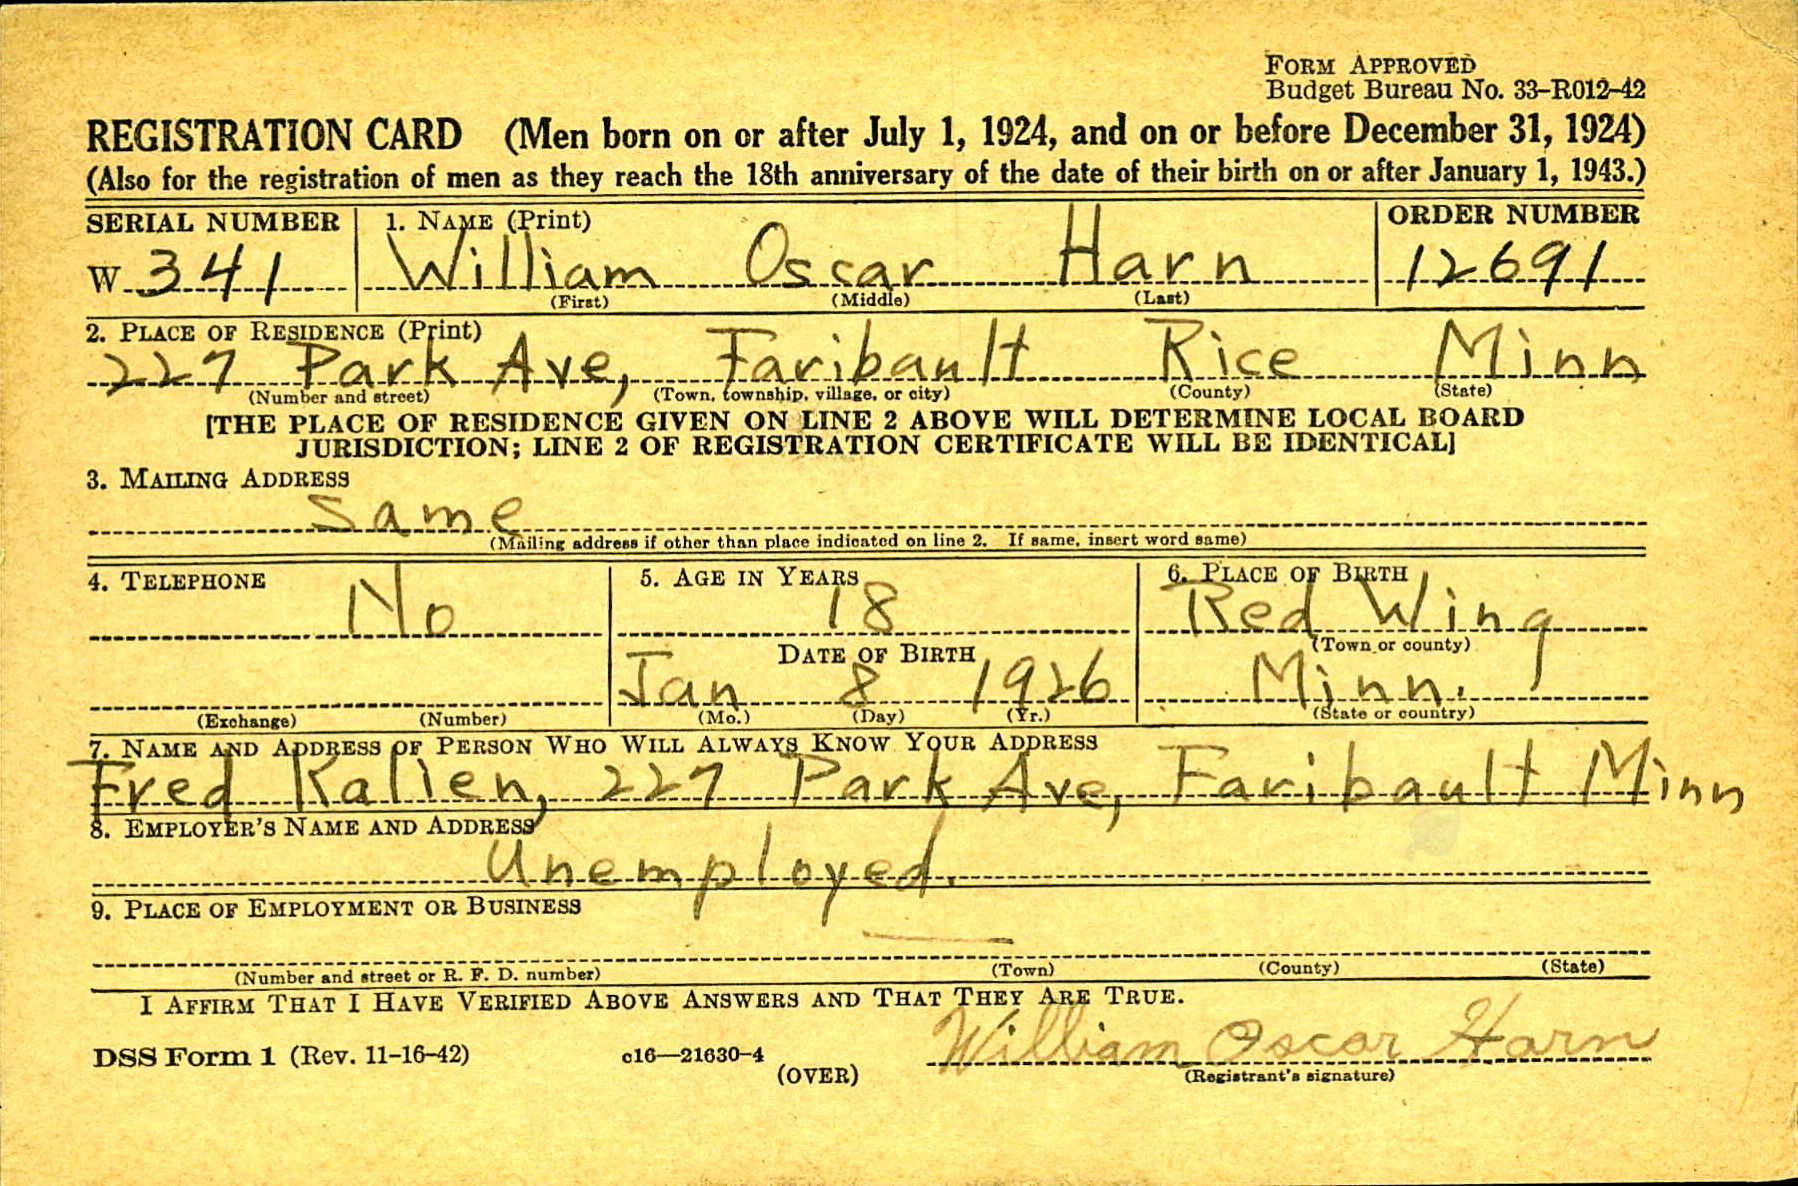 FORM APPROVED
Budget Bureau No. 33–R012–42
REGISTRATION CARD (Men born on or after July 1, 1924, and on or before December 31, 1924)
(Also for the registration of men as they reach the 18th anniversary of the date of their birth on or after January 1, 1943.)
SERIAL NUMBER 1. NAME (Print) ORDER NUMBER
W 341 William Oscar Harn 12691
(First) (Middle) (Last)
2. PLACE OF RESIDENCE (Print)
227 Park Ave, Faribault Rice Minn
(Number and street) (Town, township, village, or city) (County) (State)
[THE PLACE OF RESIDENCE GIVEN ON LINE 2 ABOVE WILL DETERMINE LOCAL BOARD
JURISDICTION; LINE 2 OF REGISTRATION CERTIFICATE WILL BE IDENTICAL]
3. MAILING ADDRESS
Same
(Mailing address if other than place indicated on line 2. If same, insert word same)
4. TELEPHONE 5. AGE IN YEARS 6. PLACE OF BIRTH
No 18 Red Wing
DATE OF BIRTH (Town or county)
Jan 8 1926 Minn.
(Exchange) (Number) (Mo.) (Day) (Yr.) (State or country)
7. NAME AND ADDRESS OF PERSON WHO WILL ALWAYS KNOW YOUR ADDRESS
Fred Kalien, 227 Park Ave, Faribault Minn
8. EMPLOYER'S NAME AND ADDRESS
Unemployed.
9. PLACE OF EMPLOYMENT OR BUSINESS
(Number and street or R. F. D. number) (Town) (County) (State)
I AFFIRM THAT I HAVE VERIFIED ABOVE ANSWERS AND THAT THEY ARE TRUE.
William Oscar Harn
DSS Form 1 (Rev. 11-16-42) c16—21630-4
(OVER) (Registrant's signature)